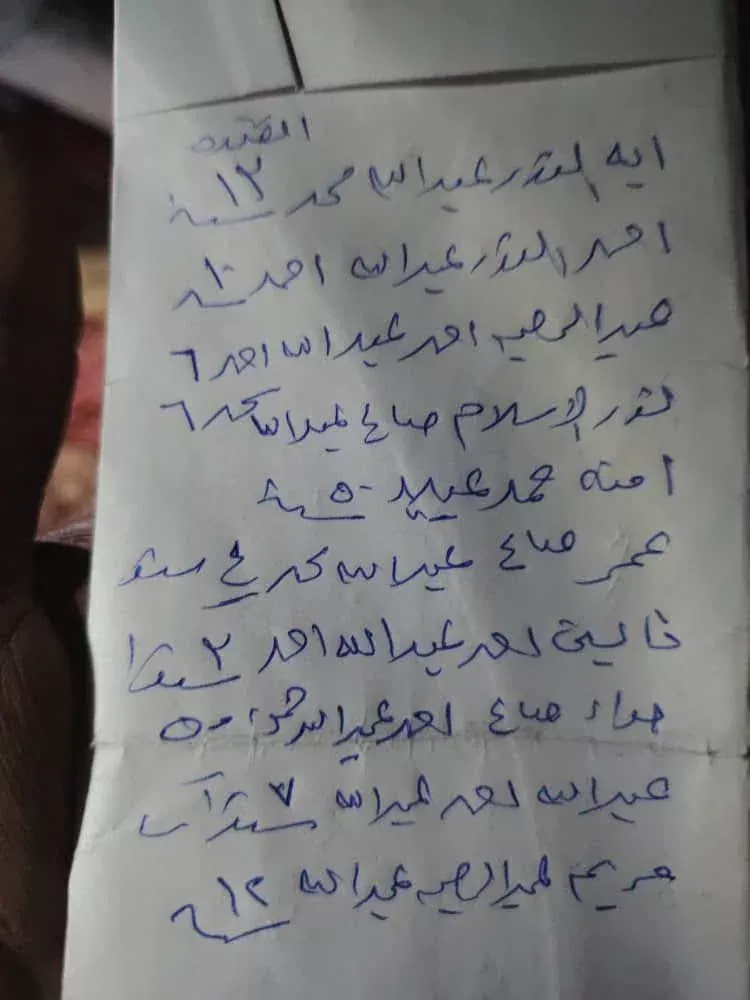 ايه النور عبدالله محمد ١٢ سنة
احمد النور عبدالله احمد ١٠ سنة
عبدالرحيم احمد عبدالله احمد ٦
نور الاسلام صالح عبدالله محمد ٦
امنه حمد عبيد ٥٠ سنة
عمر صالح عبدالله محمد ٤ سنة
احمد عبدالله احمد ٢ سنوات
حواء صالح احمد عبدالرحمن ٥٠
عبدالله احمد عبدالله ٧ سنوات
مريم عبدالرحيم عبدالله ١٢ سنة